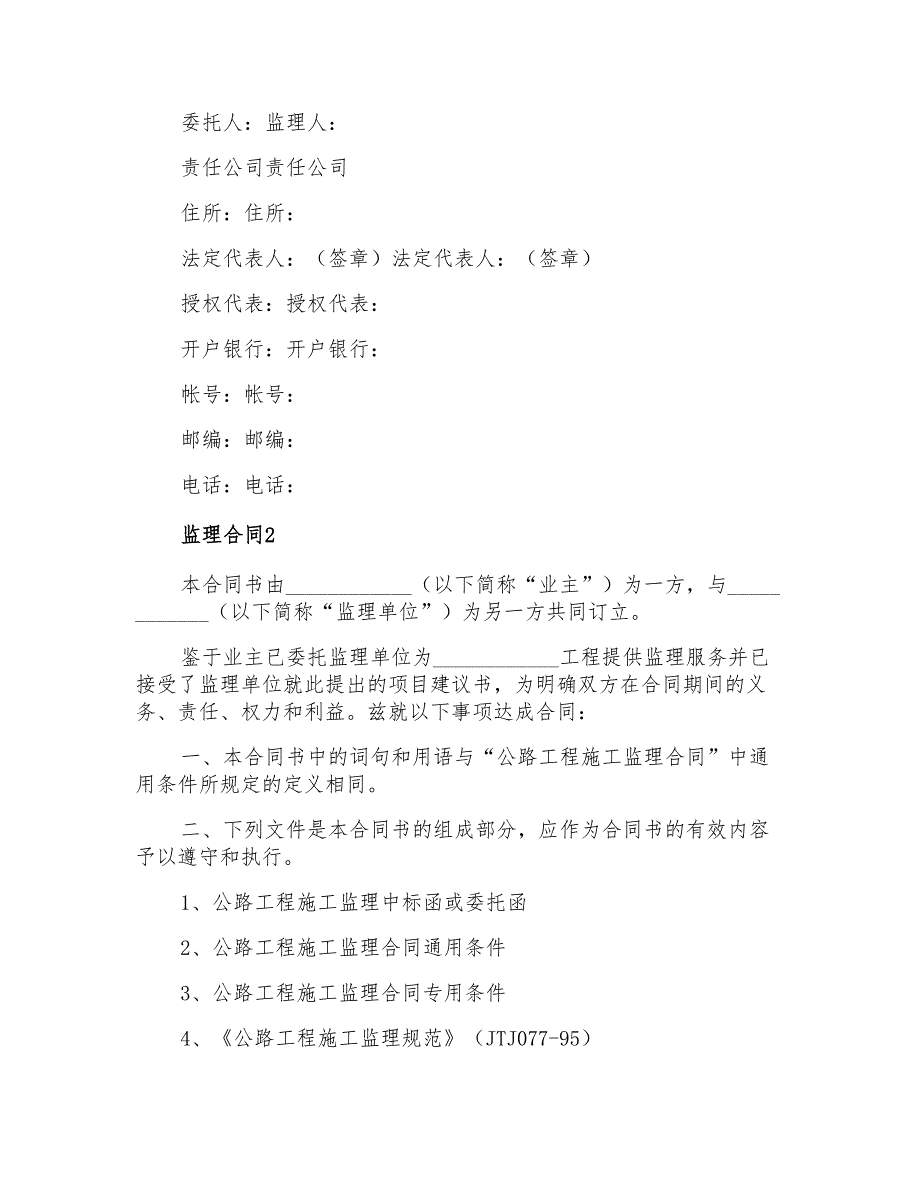 委托人：监理人：
责任公司责任公司
住所：住所：
法定代表人：（签章）法定代表人：（签章）
授权代表：授权代表：
开户银行：开户银行：
帐号：帐号：
邮编：邮编：
电话：电话：
监理合同2
本合同书由____________（以下简称“业主”）为一方，与_____
_______（以下简称“监理单位”）为另一方共同订立。
鉴于业主已委托监理单位为____________工程提供监理服务并已
接受了监理单位就此提出的项目建议书，为明确双方在合同期间的义
务、责任、权力和利益。兹就以下事项达成合同：
一、本合同书中的词句和用语与“公路工程施工监理合同”中通
用条件所规定的定义相同。
二、下列文件是本合同书的组成部分，应作为合同书的有效内容
予以遵守和执行。
1、公路工程施工监理中标函或委托函
2、公路工程施工监理合同通用条件
3、公路工程施工监理合同专用条件
4、《公路工程施工监理规范》（JTJ077-95）